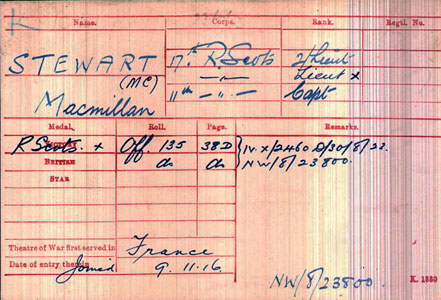 Name. Corps. Rank. Regtl. No.
STEWART 17. R. Scots 2/Lieut
(MC) — " — Lieut x
Macmillan 11th — " — Capt
Medal. Roll. Page. Remarks.
R Scots. x Off. 135 38D IV X/2460 D/30/8/23.
BRITISH do do NW/8/23800.
STAR
Theatre of War first served in France
Date of entry therein Joined 9.11.16.
NW/8/23800
K. 1380